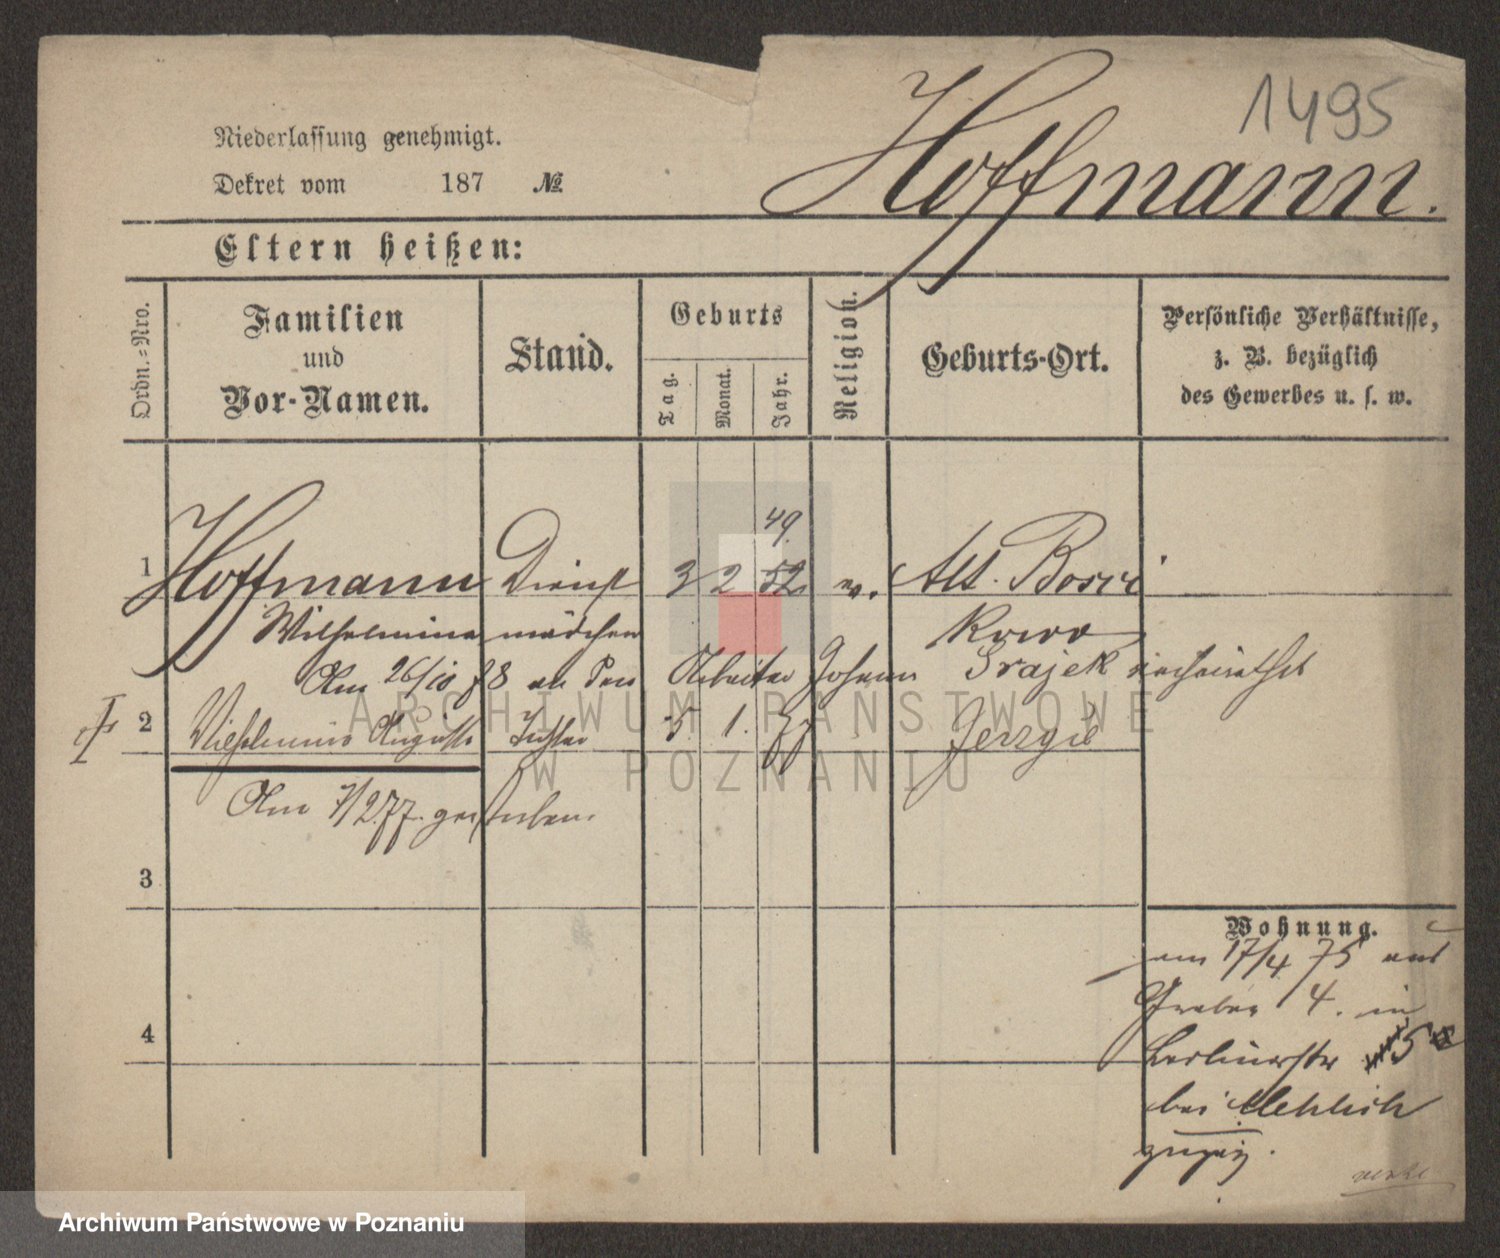 1495
Hoffmann.
Niederlassung genehmigt.
Dekret vom 187 №
Eltern heißen:
Ordn.=Nro.
Familien
und
Vor-Namen.
Stand.
Geburts
Tag.
Monat.
Jahr.
Religion.
Geburts-Ort.
Persönliche Verhältnisse,
z. B. bezüglich
des Gewerbes u. s. w.
49.
1 Hoffmann Dienst 3 2 52 ev. Alt. Borui
Wilhelmina mädchen Krwo
Am 26/10 78 an den Arbeiter Johann Srajek verheirathet
2 Wilhelmine Auguste Tochter 5 1. 77 Jerzyce
Am 7/2.77. gestorben.
3
4
Wohnung.
am 17/4 75 aus
Graben 4. in
Berlinerstr 5
bei Mehlich
zugez.
ARCHIWUM PAŃSTWOWE
W POZNANIU
Archiwum Państwowe w Poznaniu